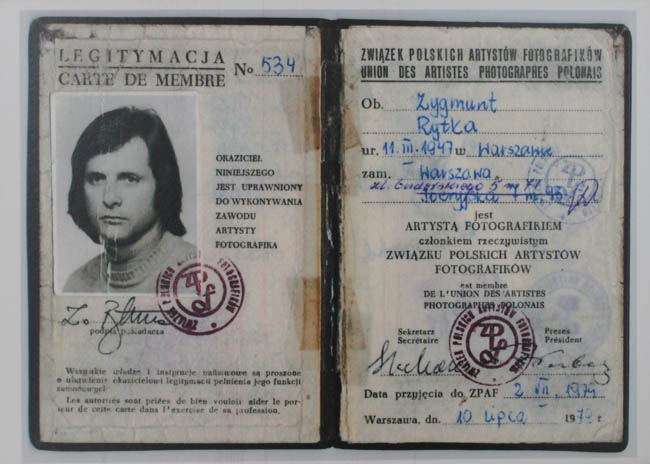 LEGITYMACJA
CARTE DE MEMBRE
No 534
OKAZICIEL
NINIEJSZEGO
JEST UPRAWNIONY
DO WYKONYWANIA
ZAWODU
ARTYSTY
FOTOGRAFIKA
podpis posiadacza
Wszystkie władze i instytucje państwowe są proszone
o ułatwienie okazicielowi legitymacji pełnienia jego funkcji
zawodowych.
Les autorités sont priées de bien vouloir aider le por-
teur de cette carte dans l'exercise de sa profession.
ZWIĄZEK POLSKICH ARTYSTÓW FOTOGRAFIKÓW
UNION DES ARTISTES PHOTOGRAPHES POLONAIS
Ob. Zygmunt
Rytka
ur. 11. III. 1947 w Warszawie
zam. Warszawa
jest
ARTYSTĄ FOTOGRAFIKIEM
członkiem rzeczywistym
ZWIĄZKU POLSKICH ARTYSTÓW
FOTOGRAFIKÓW
est membre
DE L'UNION DES ARTISTES
PHOTOGRAPHES POLONAIS
Sekretarz
Secrétaire
Prezes
Président
Data przyjęcia do ZPAF 2 VII 1979
Warszawa, dn. 10 lipca 1979 r.